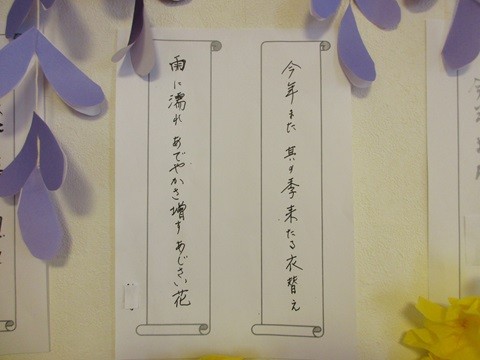 今年また 其の季来たる衣替え
雨に濡れ あでやかさ増すあじさい花